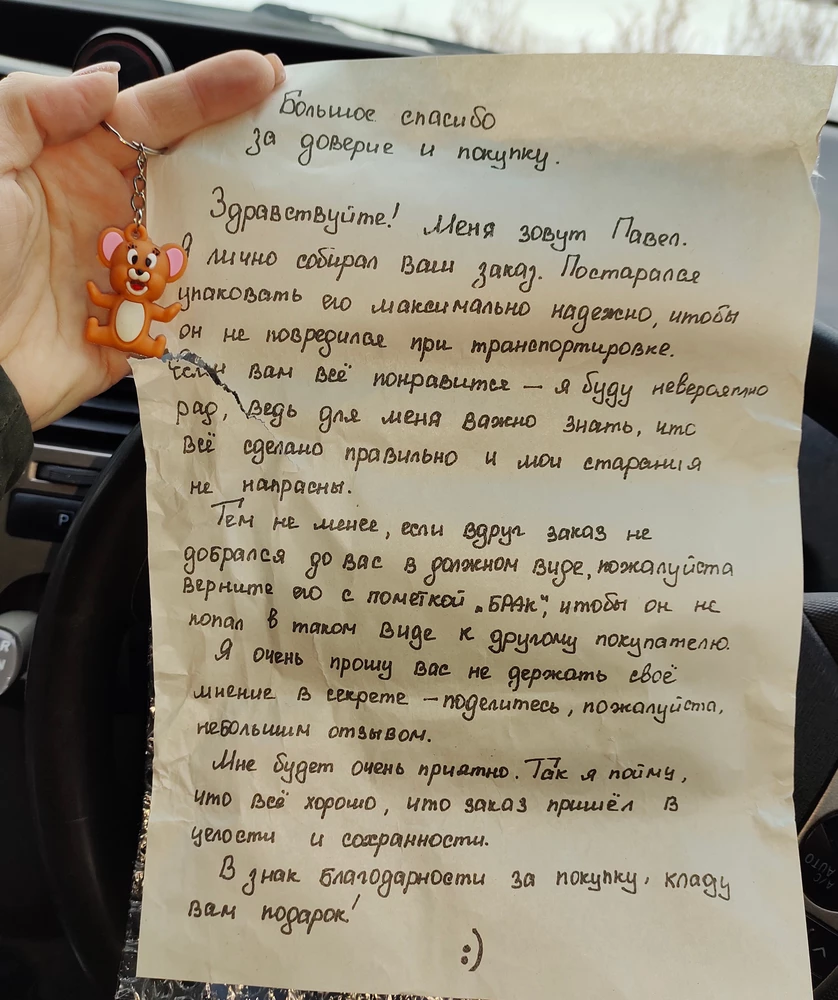 Большое спасибо
за доверие и покупку.
Здравствуйте! Меня зовут Павел.
Я лично собирал Ваш заказ. Постарался
упаковать его максимально надежно, чтобы
он не повредился при транспортировке.
Если вам всё понравится – я буду невероятно
рад, ведь для меня важно знать, что
всё сделано правильно и мои старания
не напрасны.
Тем не менее, если вдруг заказ не
добрался до вас в должном виде, пожалуйста
верните его с пометкой „БРАК“, чтобы он не
попал в таком виде к другому покупателю.
Я очень прошу Вас не держать своё
мнение в секрете – поделитесь, пожалуйста,
небольшим отзывом.
Мне будет очень приятно. Так я пойму,
что всё хорошо, что заказ пришёл в
целости и сохранности.
В знак благодарности за покупку, кладу
вам подарок!
:)
P